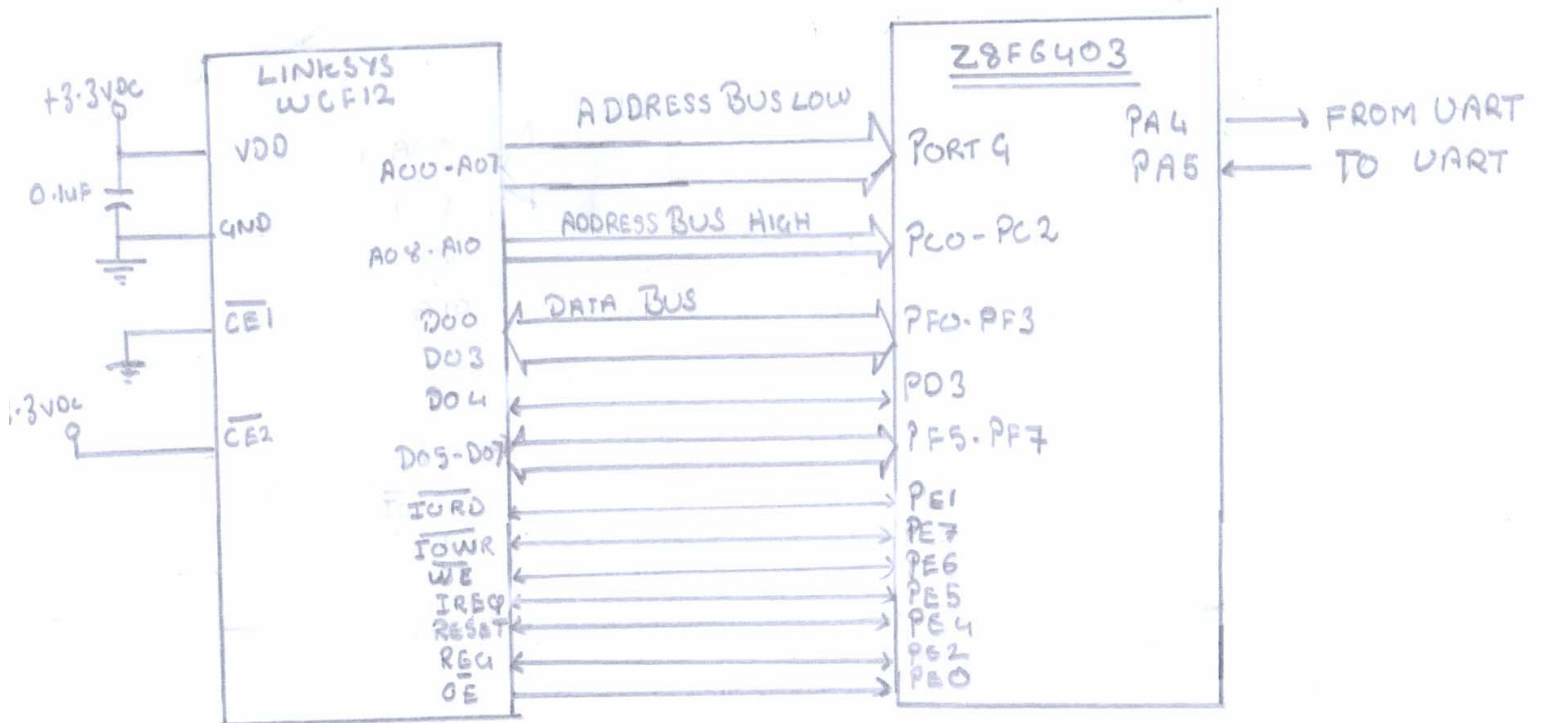 LINKSYS
WCF12
+3.3VDC
VDD
0.1uF
GND
CE1
.3VDC
CE2
A00-A07
A08-A10
D00
D03
D04
D05-D07
IORD
IOWR
WE
IREQ
RESET
REG
OE
ADDRESS BUS LOW
ADDRESS BUS HIGH
DATA BUS
Z8F6403
PORT G
PC0-PC2
PF0-PF3
PD3
PF5-PF7
PE1
PE7
PE6
PE5
PE4
PE2
PE0
PA4
PA5
FROM UART
TO UART